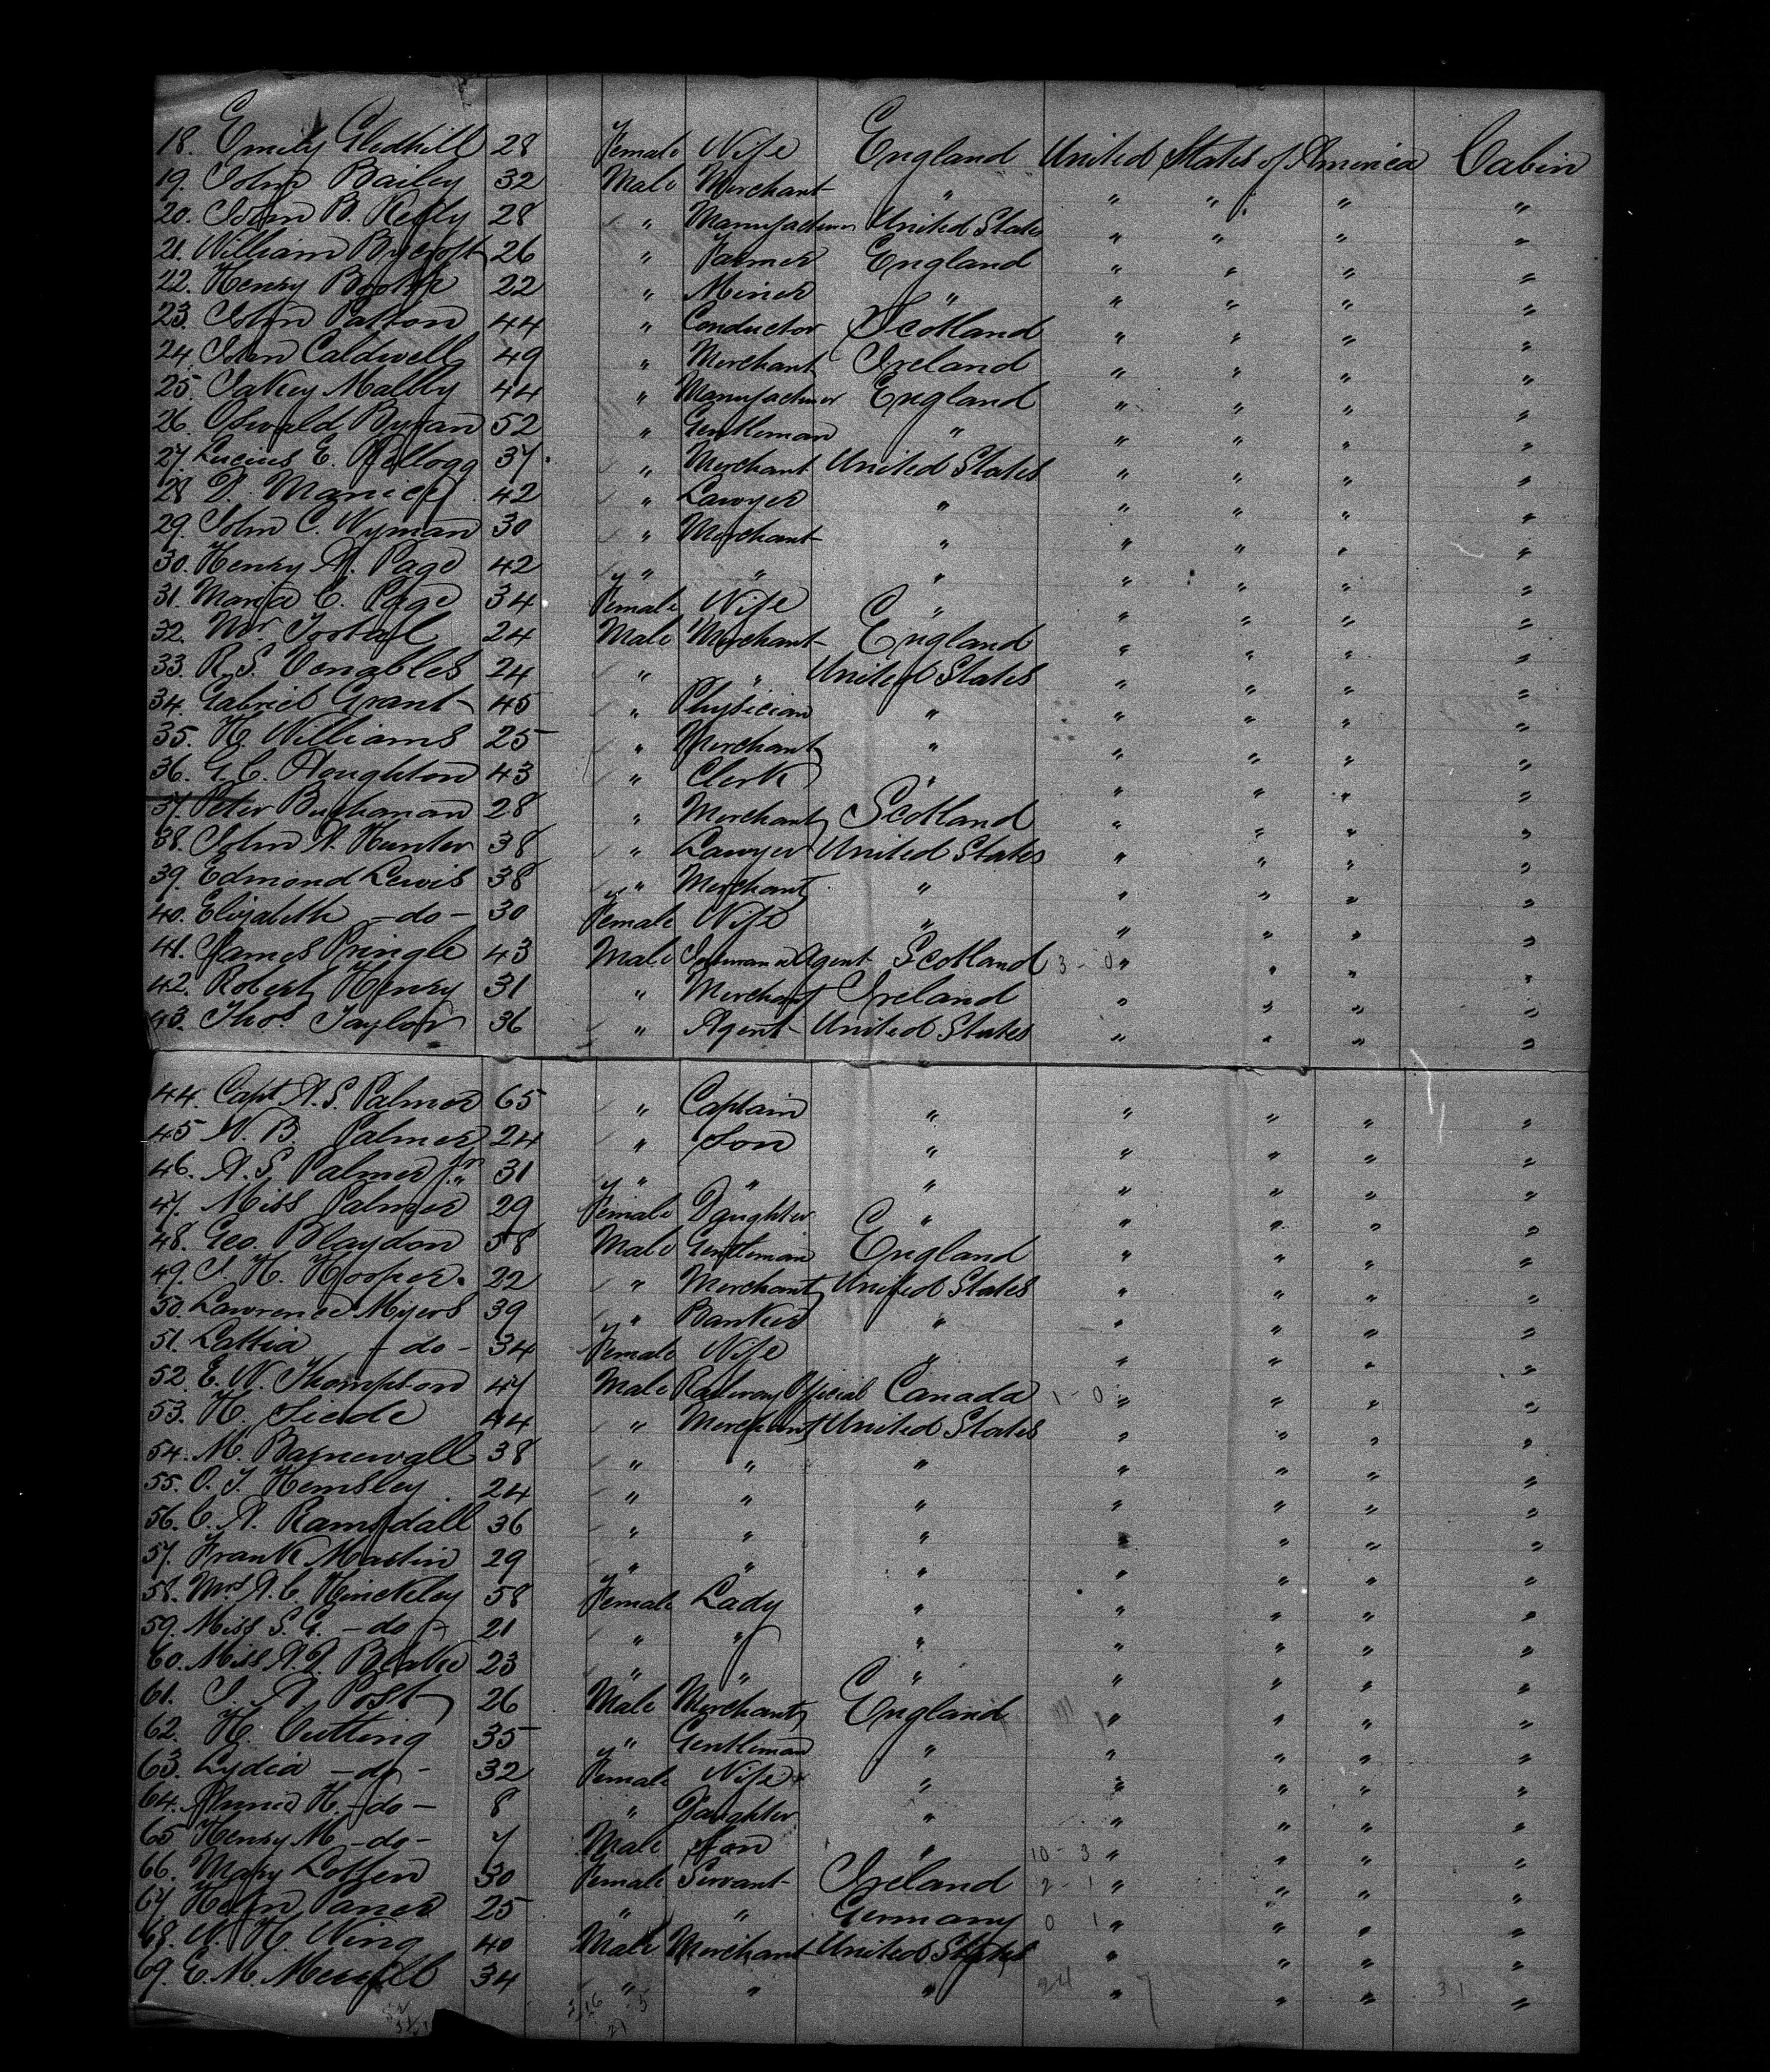 18. Emily Gledhill 28 Female Wife England United States of America Cabin
19. John Bailey 32 Male Merchant " " " " "
20. John B. Kelly 28 " Manufacturer United States " " " "
21. William Bycroft 26 " Farmer England " " " "
22. Henry Booth 22 " Miner " " " " "
23. John Patton 44 " Conductor Scotland " " " "
24. John Caldwell 49 " Merchant Ireland " " " "
25. Malby 44 " Manufacturer England " " " "
26. Oswald Byran 52 " Gentleman " " " " "
27. Lucius E. Kellogg 37 " Merchant United States " " " "
28 D. 42 " Lawyer " " " " "
29. John C. Wyman 30 " Merchant " " " " "
30. Henry A. Page 42 " " " " " " "
31. Maria C. Page 34 Female Wife " " " " "
32. Mr. Tootal 24 Male Merchant England " " " "
33. R. S. Venables 24 " " United States " " " "
34. Gabriel Grant 45 " Physician " " " " "
35. H. Williams 25 " Merchant " " " " "
36. G. C. Houghton 43 " Clerk " " " " "
37. Peter Buchanan 28 " Merchant Scotland " " " "
38. John A. Hunter 38 " Lawyer United States " " " "
39. Edmond Lewis 38 " Merchant " " " " "
40. Elizabeth -do- 30 Female Wife " " " " "
41. James Pringle 43 Male Insurance Agent Scotland 3 - 0 " " " "
42. Robert Henry 31 " Merchant Ireland " " " "
43. Thos. Taylor 36 " Agent United States " " " "
44. Capt A. S. Palmer 65 " Captain " " " " "
45 N. B. Palmer 24 " Son " " " " "
46. A. S. Palmer Jnr. 31 " " " " " " "
47. Miss Palmer 29 Female Daughter " " " " "
48. Geo. Blaydon 58 Male Gentleman England " " " "
49. J. H. Hooper. 22 " Merchant United States " " " "
50. Lawrence Myers 39 " Banker " " " " "
51. Lattia -do- 34 Female Wife " " " " "
52. E. W. Thompson 47 Male Railway Official Canada 1 - 0 " " " "
53. H. Siede 44 " Merchant United States " " " "
54. M. Barnewall 38 " " " " " " "
55. O. T. Hemsley 24 " " " " " " "
56. C. A. Ramsdall 36 " " " " " " "
57. Frank Martin 29 " " " " " " "
58. Mrs A. C. Hinckley 58 Female Lady " " " " "
59. Miss S. G. -do- 21 " " " " " " "
60. Miss A. J. Blake 23 " " " " " " "
61. J. A. Post 26 Male Merchant England " " " "
62. H. Cutting 35 " Gentleman " " " " "
63. Lydia -do- 32 Female Wife " " " " "
64. Annie H. -do- 8 " Daughter " " " " "
65 Henry M -do- 7 Male Son " 10 - 3 " " " "
66. Mary Lotten 30 Female Servant Ireland 2 - 1 " " " "
67 Helen 25 " " Germany 0 1 " " " "
68. W. H. Wing 40 Male Merchant United States " " " "
69. E. M. 34 " " " 24 " 7 " " 31 "